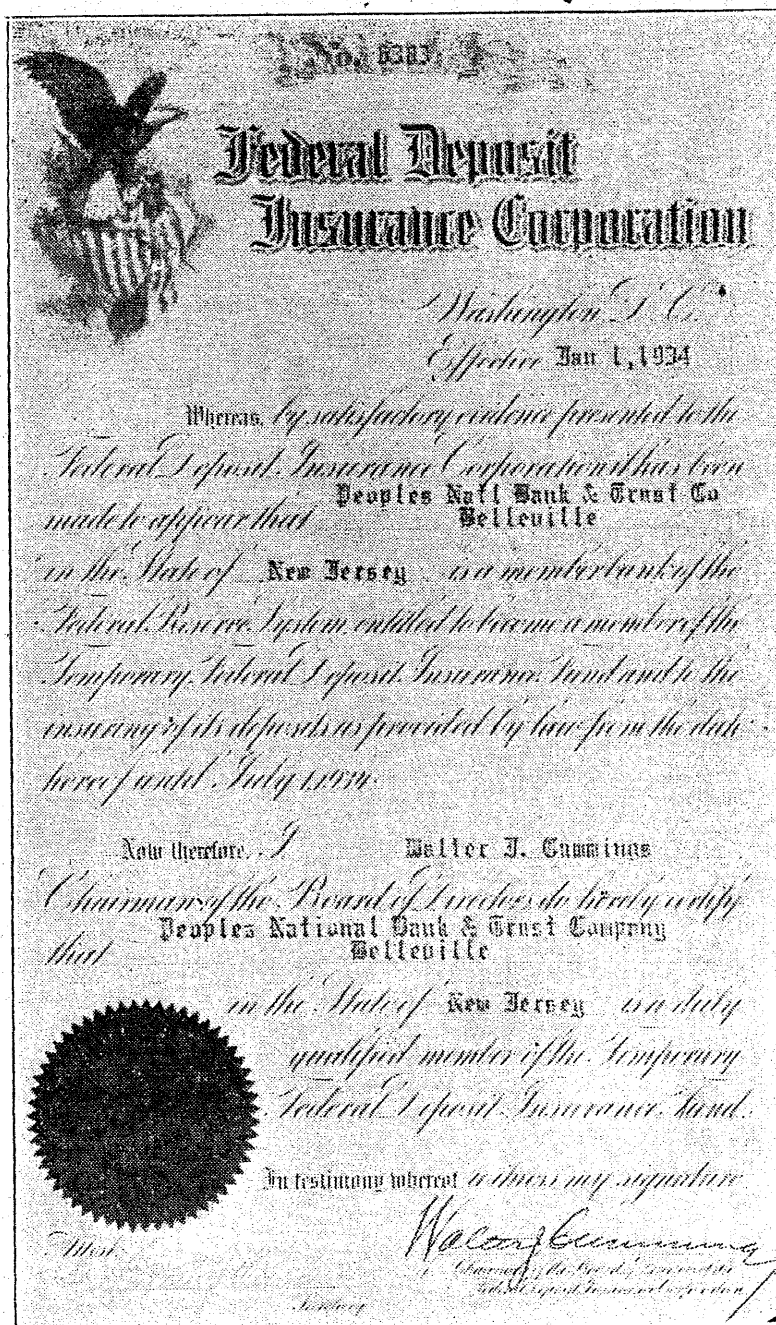 No. 6383
Federal Deposit
Insurance Corporation
Washington D. C.
Effective Jan 1, 1934
Whereas, by satisfactory evidence presented to the
Federal Deposit Insurance Corporation it has been
Peoples Natl Bank & Trust Co
made to appear that Belleville
in the State of New Jersey is a member bank of the
Federal Reserve System, entitled to become a member of the
Temporary Federal Deposit Insurance Fund and to the
insuring of its deposits as provided by law from the date
hereof until July 1, 1934.
Now therefore, I Walter J. Cummings
Chairman of the Board of Directors do hereby certify
Peoples National Bank & Trust Company
that Belleville
in the State of New Jersey is a duly
qualified member of the Temporary
Federal Deposit Insurance Fund.
In testimony whereof witness my signature
Attest
Walter J Cummings
Chairman of the Board of Directors
Federal Deposit Insurance Corporation
Secretary